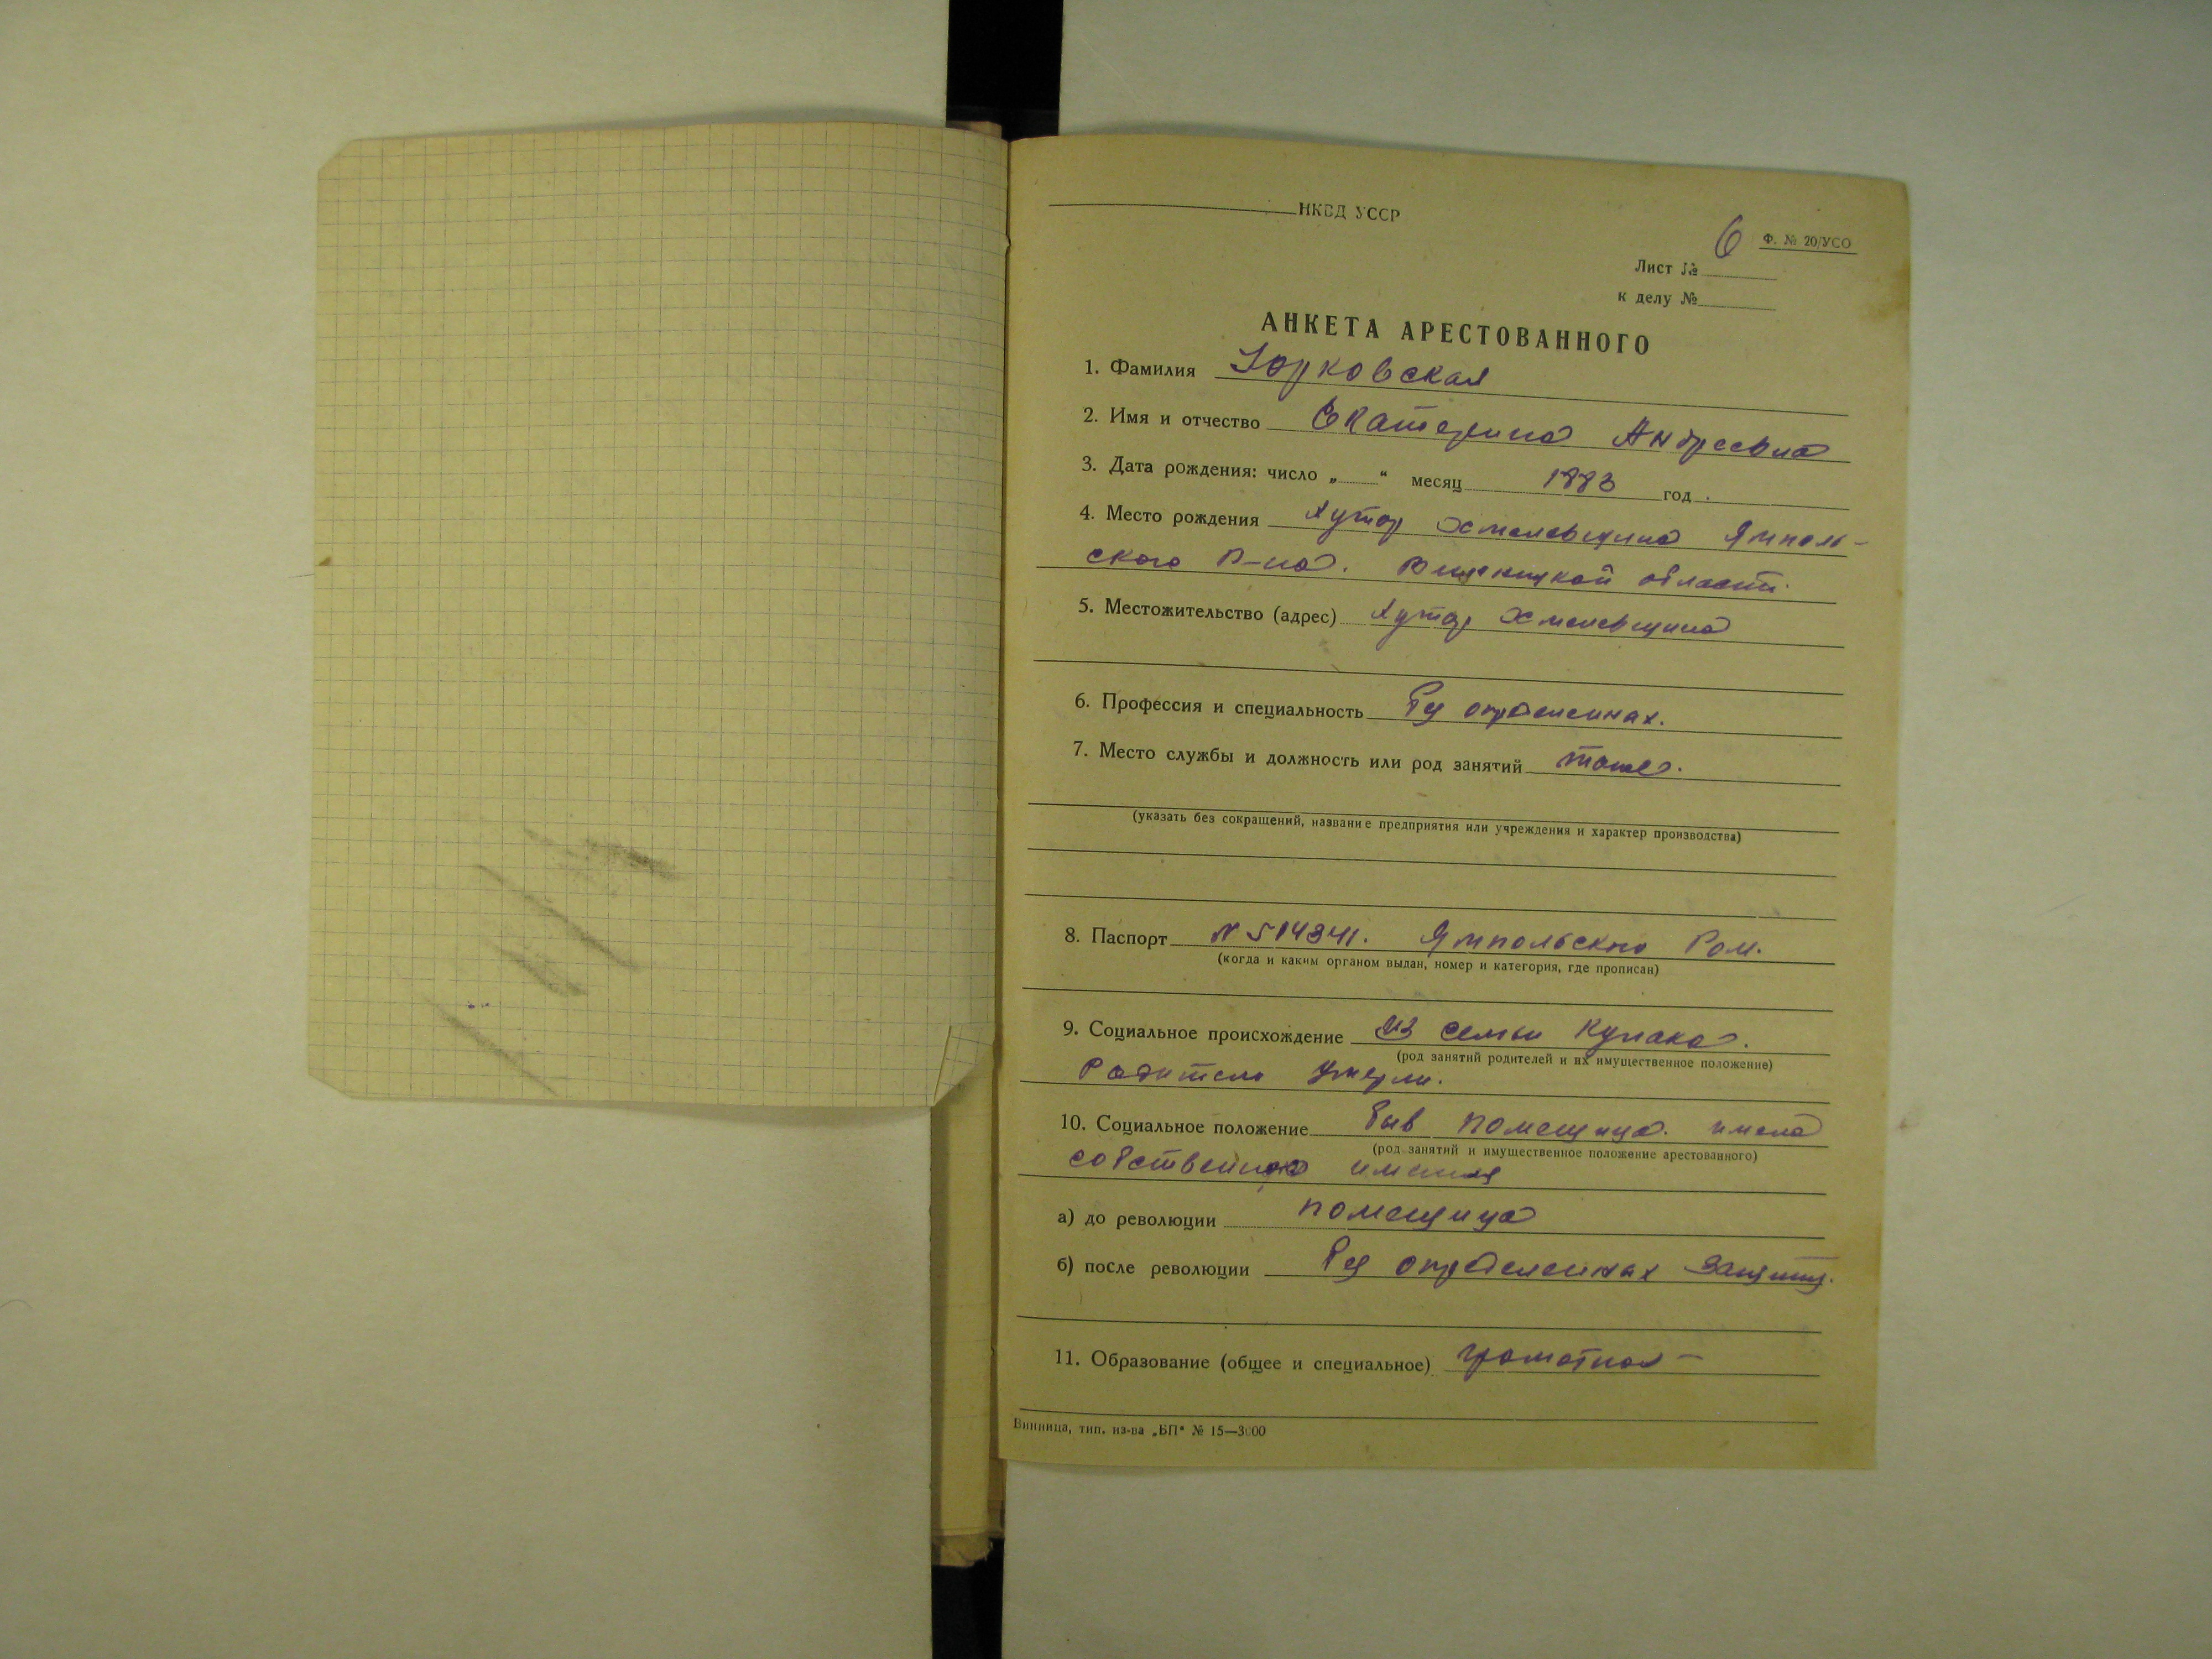 НКВД УССР
6 Ф. № 20/УСО
Лист №
к делу №
АНКЕТА АРЕСТОВАННОГО
1. Фамилия Юрковская
2. Имя и отчество Екатерина Андреевна
3. Дата рождения: число „ “ месяц 1883 год.
4. Место рождения Хутор Хмелевщина Ямполь-
ского Р-на. Винницкой области.
5. Местожительство (адрес) Хутор Хмелевщина
6. Профессия и специальность Без определенных.
7. Место службы и должность или род занятий тоже.
(указать без сокращений, название предприятия или учреждения и характер производства)
8. Паспорт № 514341. Ямпольского Ром.
(когда и каким органом выдан, номер и категория, где прописан)
9. Социальное происхождение из семьи Кулака.
(род занятий родителей и их имущественное положение)
Родители умерли.
10. Социальное положение Быв помещица. имела
(род занятий и имущественное положение арестованного)
собственное имение
а) до революции помещица
б) после революции Без определенных
11. Образование (общее и специальное) грамотная —
Винница, тип. из-ва „БП“ № 15—3000